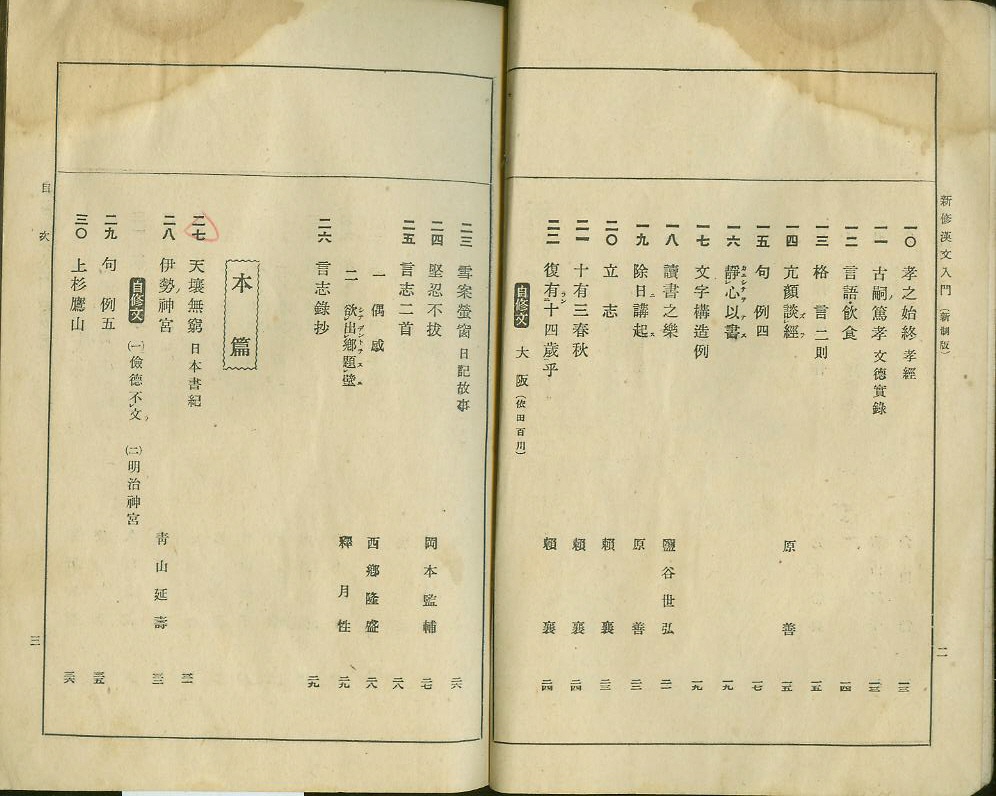 新修漢文入門（新制版）
二
一〇 孝之始終 孝經 一三
一一 古嗣ノ篤孝 文德實錄 一三
一二 言語飲食 一四
一三 格言二則 一五
一四 亢顏談經 原善 一五
一五 句例四 一七
一六 靜心以書 一九
一七 文字構造例 一九
一八 讀書之樂 鹽谷世弘 二一
一九 除日講起 原善 二二
二〇 立志 賴襄 二三
二一 十有三春秋 賴襄 二四
二二 復有十四歲乎 賴襄 二四
自修文 大阪（依田百川）
二三 雪案螢窗 日記故事 二六
二四 堅忍不拔 岡本監輔 二七
二五 言志二首 二八
一 偶感 西鄉隆盛 二八
二 欲出鄉題壁 釋月性 二九
二六 言志錄抄 二九
本篇
二七 天壤無窮 日本書紀 三一
二八 伊勢神宮 青山延壽 三二
自修文 （一）儉德不文 （二）明治神宮
二九 句例五 三五
三〇 上杉鷹山 三六
目次
三